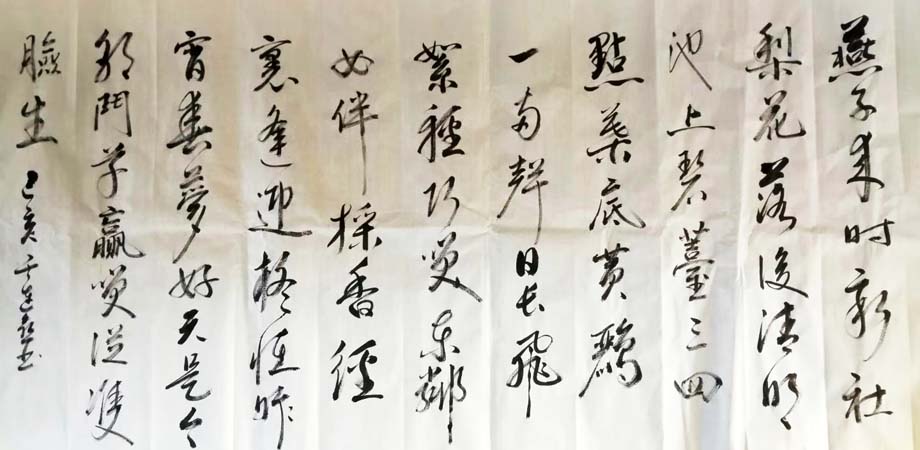 燕子来时新社
梨花落後清明
池上碧薹三四
點葉底黄鸝
一两聲日長飛
絮輕巧笑东鄰
女伴採香徑
裏逢迎疑怪昨
宵春夢好元是今
朝鬥草贏笑從雙
臉生 己亥